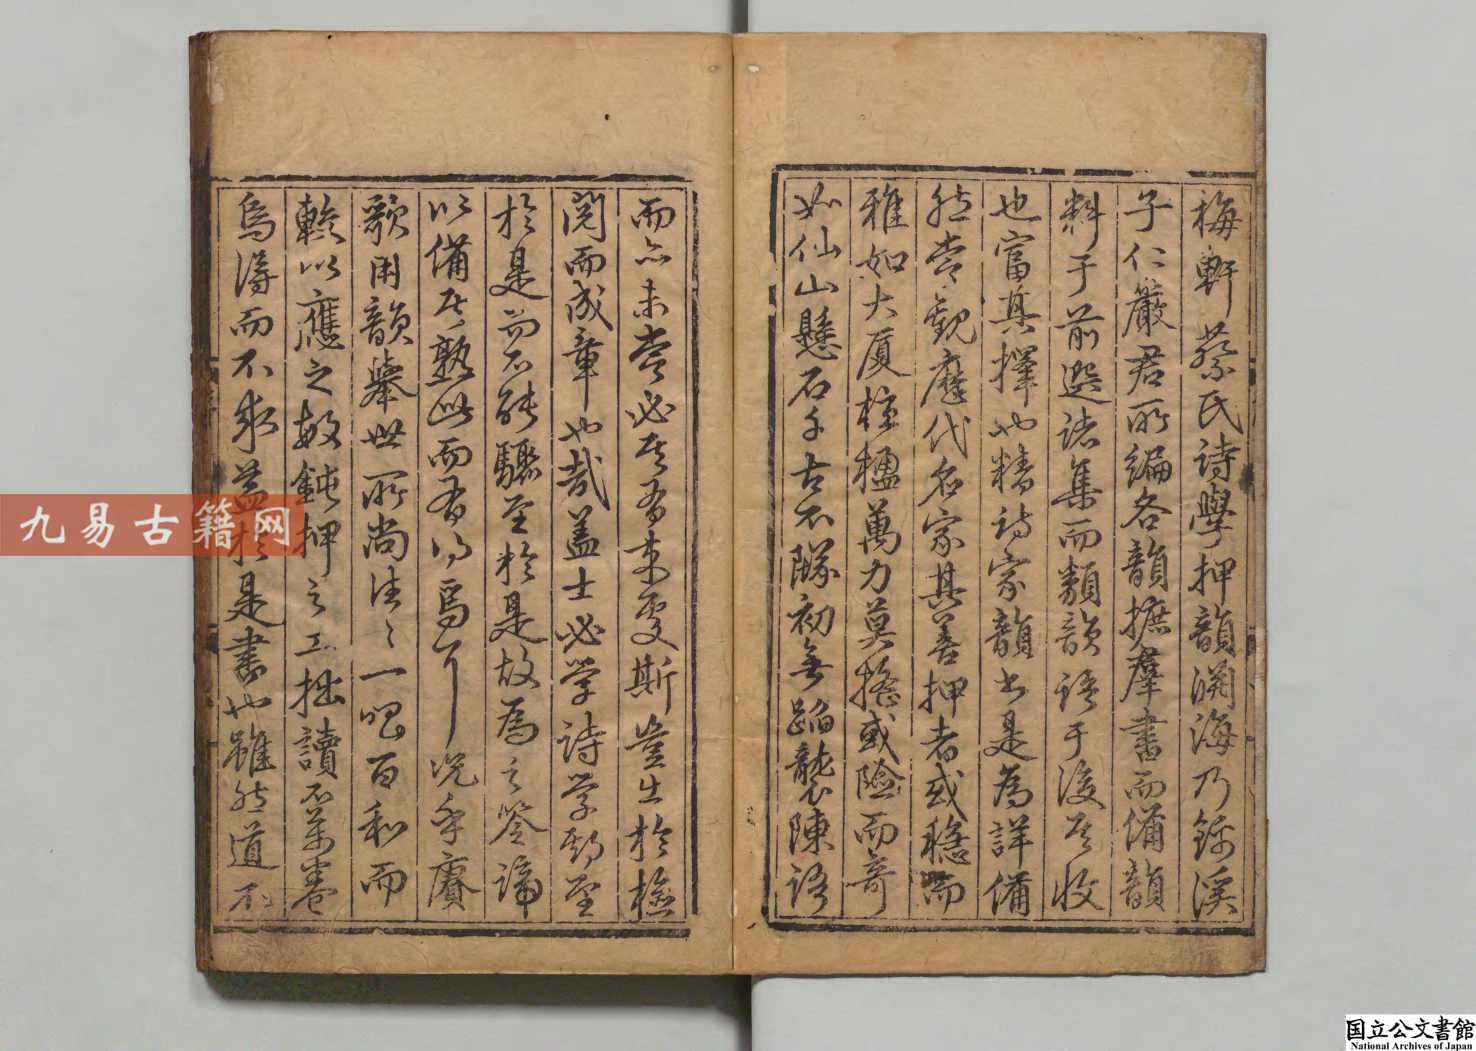 梅軒蔡氏詩學押韻淵海乃錦溪
子仁嚴君所編各韻摭羣書而備韻
料于前選諸集而類韻語于後其收
也富其擇也精詩家韻書是為詳備
然嘗觀歷代名家其善押者或穩而
雅如大厦柱楹萬力莫搖或險而奇
如仙山懸石千古不隊初無蹈襲陳語
而亦未嘗必其有來更斯豈出於檢
閱而成章也哉蓋士必学詩学詩至
於是而不能驟至於是故為之筌蹄
以備其熟此而有得焉耳況乎賡
歌用韻舉世所尚往々一唱百和而
輪以應之敏鈍押之工拙讀不萬卷
烏得而不求益於是書也雖然道不
九易古籍网
国立公文書館
National Archives of Japan